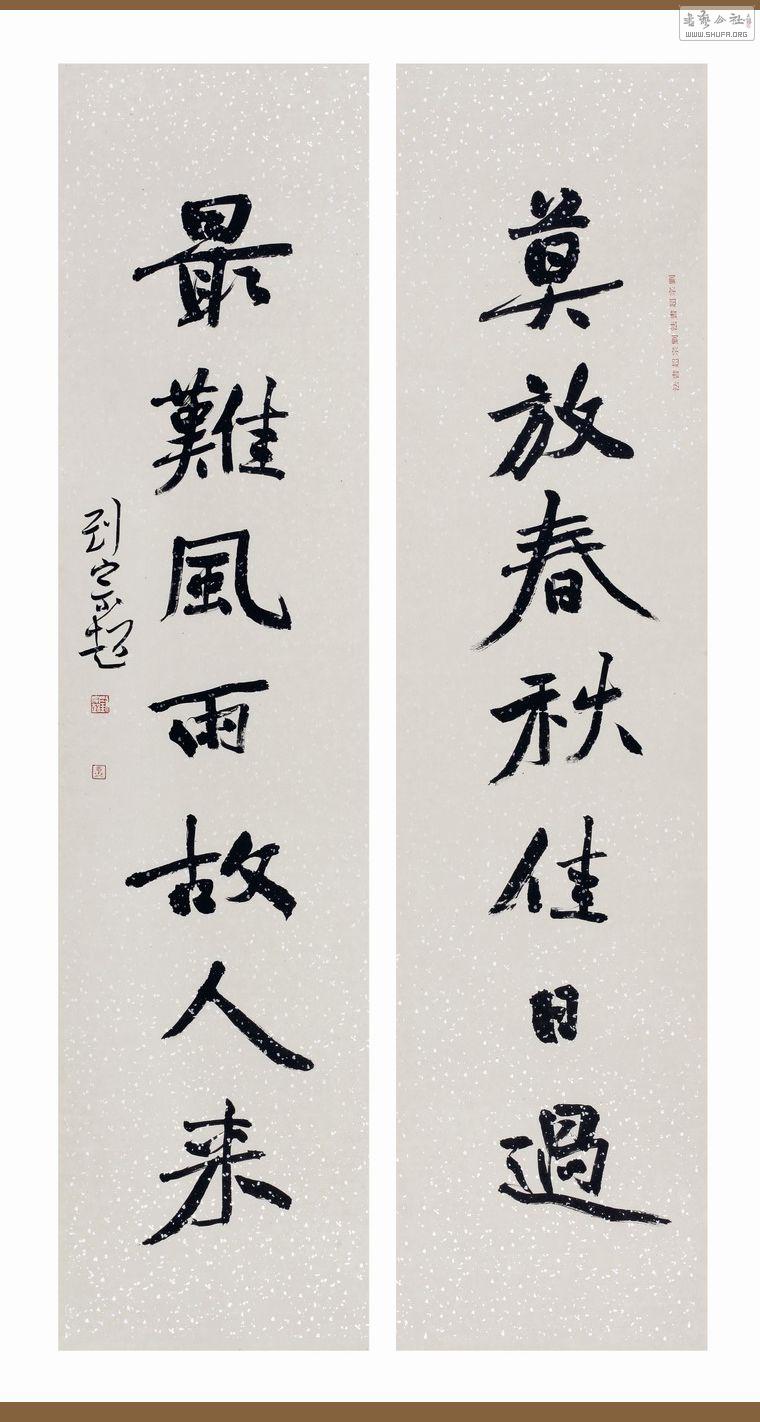 莫放春秋佳日過
最難風雨故人来
刘宗超
書藝公社
WWW.SHUFA.ORG